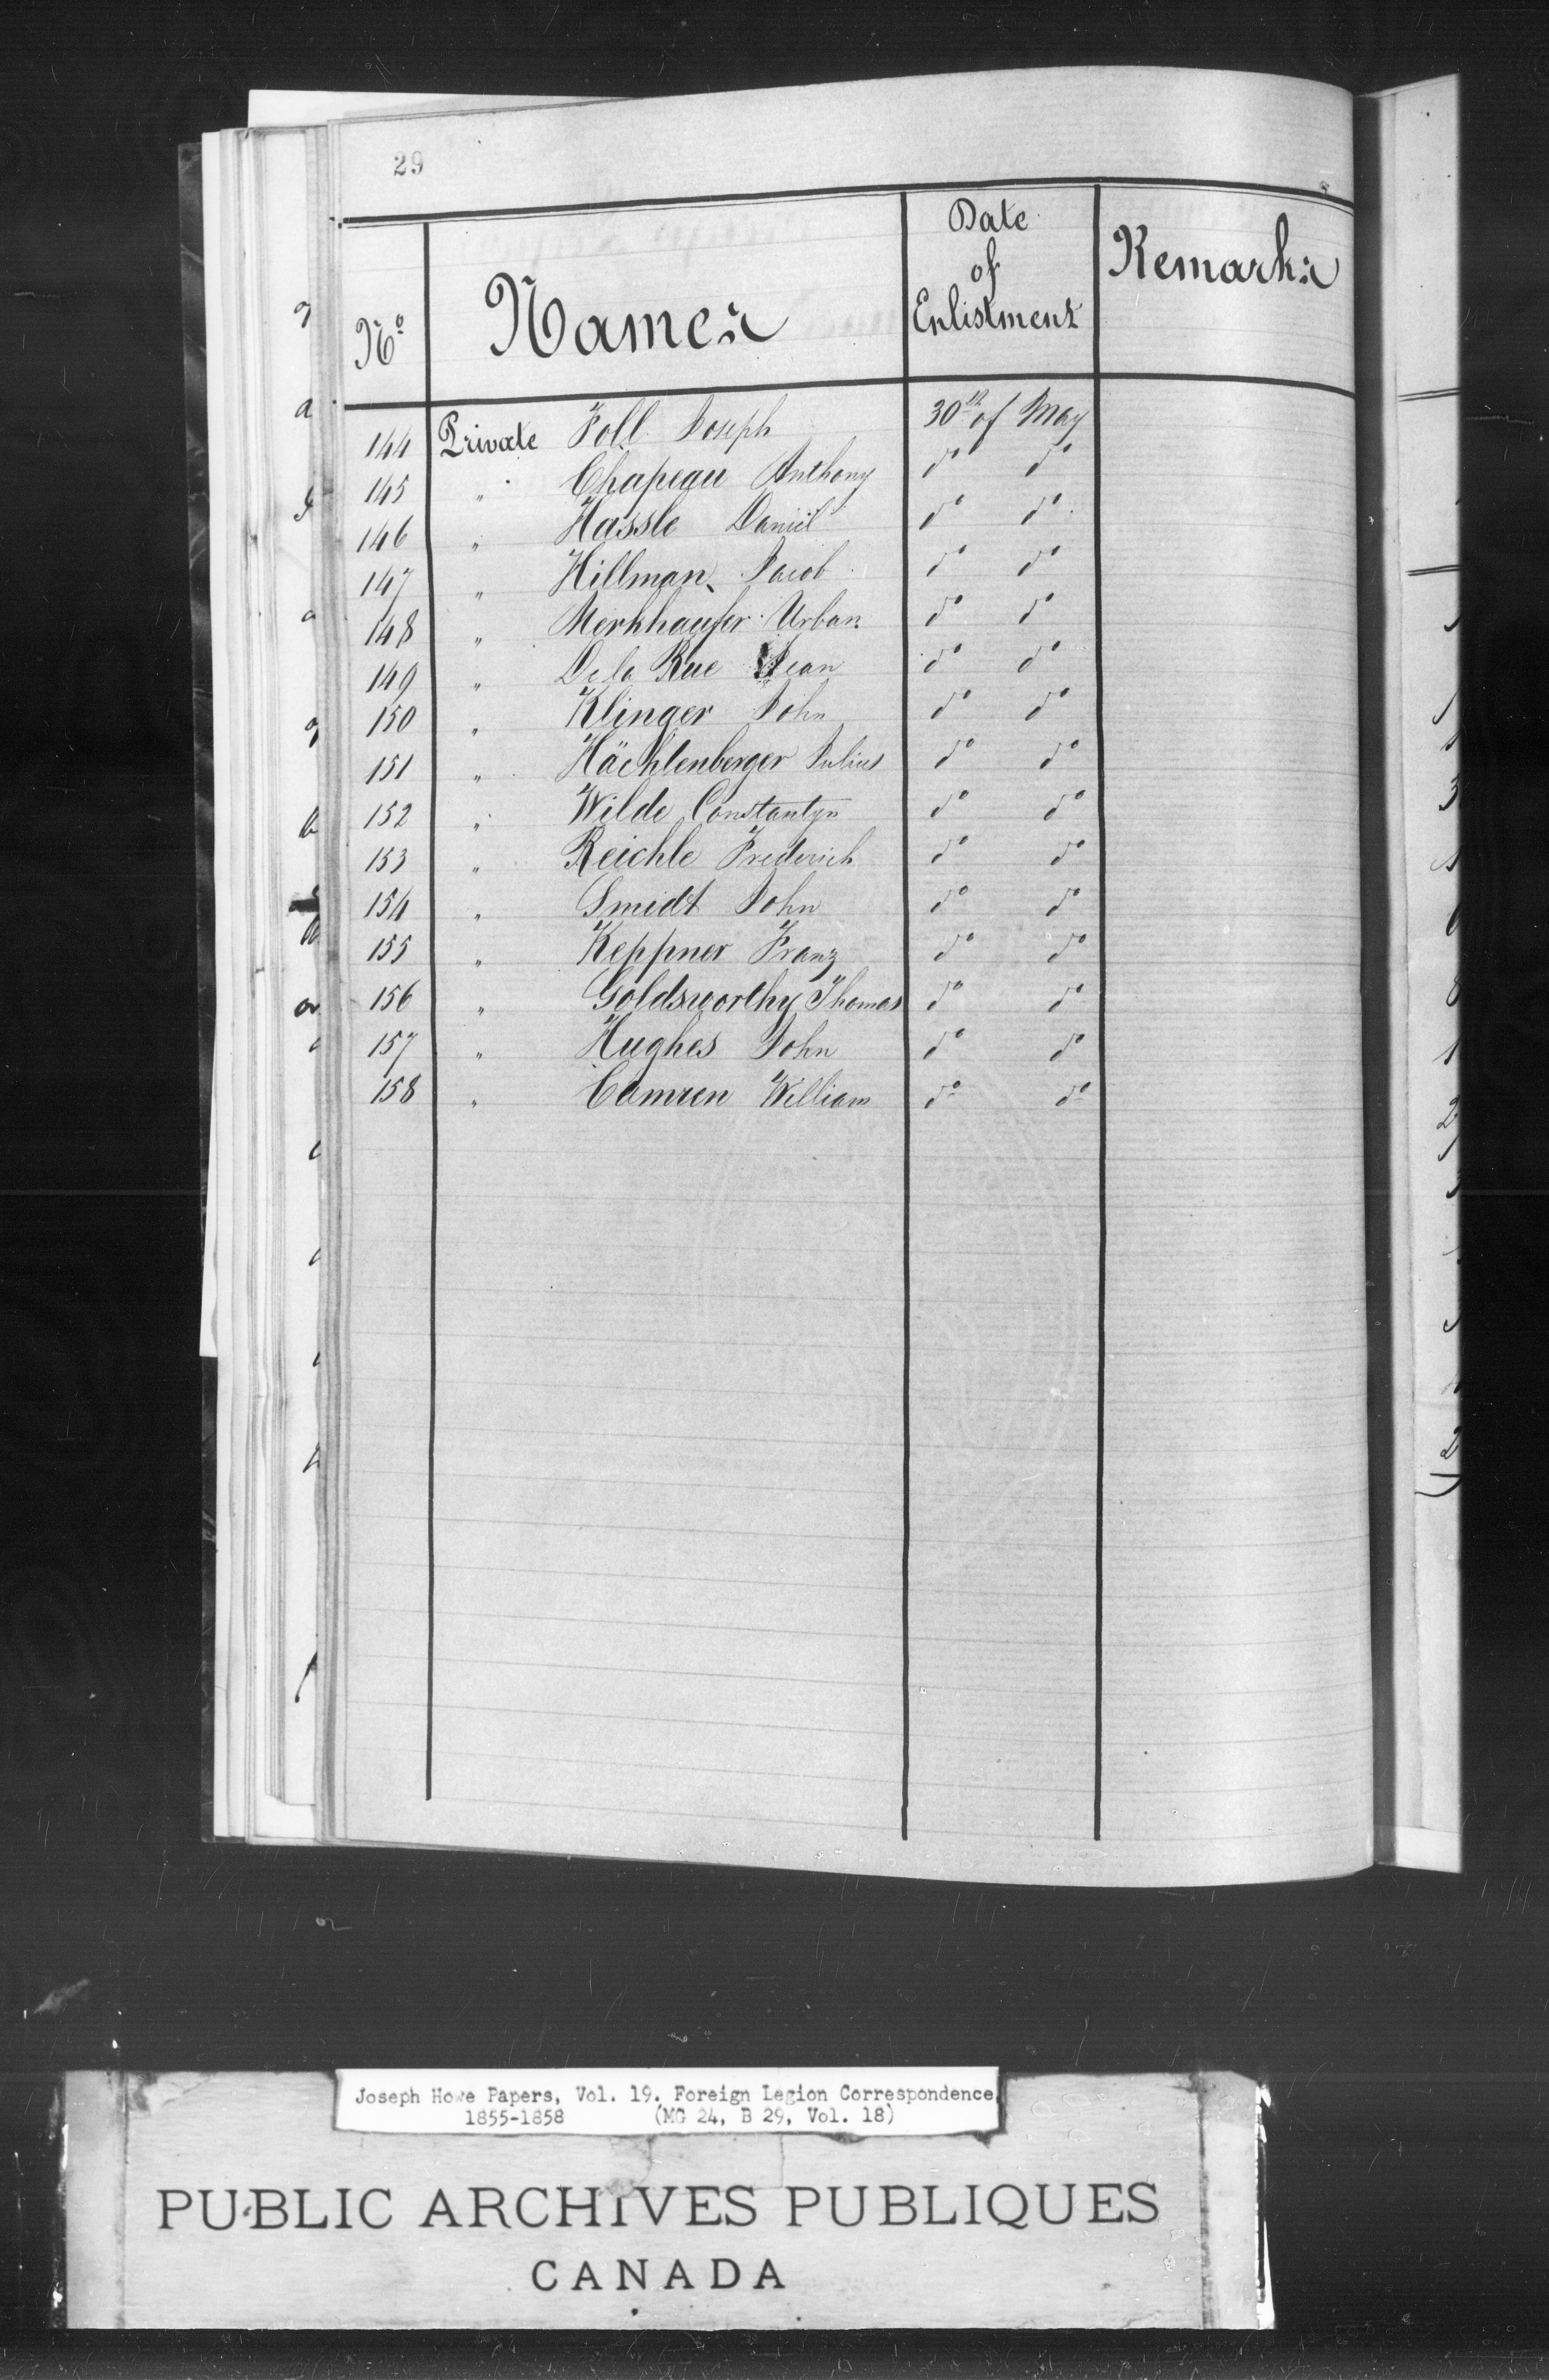 29
Nº Names Date of Enlistment Remarks
144 Private Foll Joseph 30th of May
145 " Chapeau Anthony do do
146 " Hassle Daniel do do
147 " Hillman Jacob do do
148 " Merkhaufer Urban do do
149 " De la Rue Jean do do
150 " Klinger John do do
151 " Hächlenberger Julius do do
152 " Wilde Constantyn do do
153 " Reichle Frederich do do
154 " Smidt John do do
155 " Keppner Franz do do
156 " Goldsworthy Thomas do do
157 " Hughes John do do
158 " Camren William do do
Joseph Howe Papers, Vol. 19. Foreign Legion Correspondence,
1855-1858 (MG 24, B 29, Vol. 18)
PUBLIC ARCHIVES PUBLIQUES
CANADA